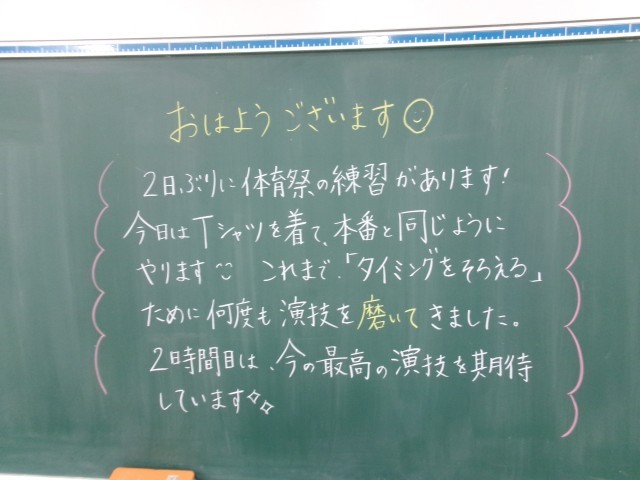 おはようございます☺
2日ぶりに体育祭の練習があります!
今日はTシャツを着て、本番と同じように
やります☺ これまで、「タイミングをそろえる」
ために何度も演技を磨いてきました。
2時間目は、今の最高の演技を期待
しています✧✧